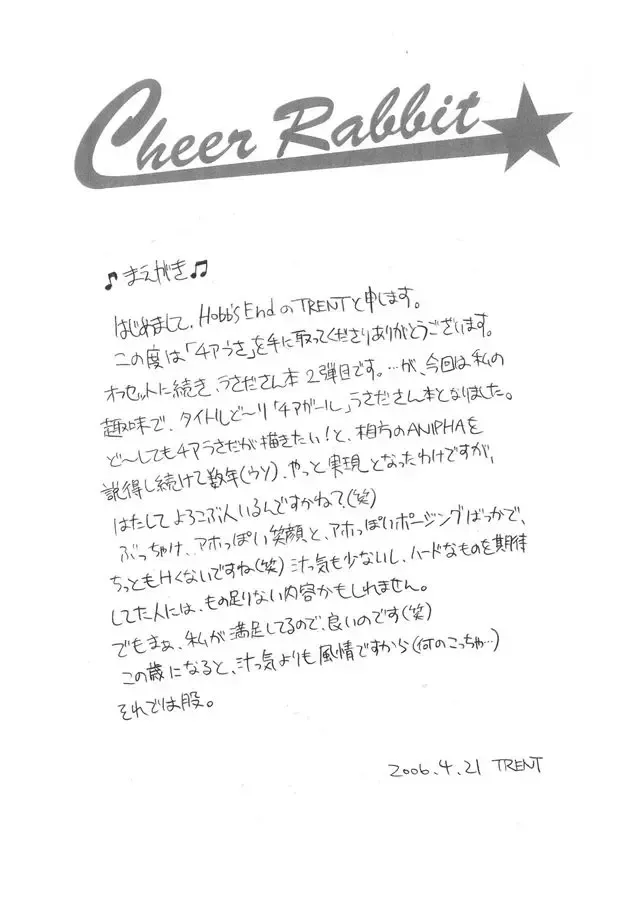 Cheer Rabbit
♪まえがき♫
はじめまして、Hobb's EndのTRENTと申します。
この度は「チアうさ」を手に取ってくださりありがとうございます。
オフセットに続き、うさださん本2弾目です。…が、今回は私の
趣味で、タイトルど〜り「チアガール」うさださん本となりました。
ど〜してもチアうさだが描きたい!と、相方のANIPHAを
説得し続けて数年(ウソ)、やっと実現となったわけですが、
はたしてよろこぶ人いるんですかね?(笑)
ぶっちゃけ、アホっぽい笑顔と、アホっぽいポージングばっかで、
ちっともHくないですね(笑)汁っ気も少ないし、ハードなものを期待
してた人には、もの足りない内容かもしれません。
でもまぁ、私が満足してるので、良いのです(笑)
この歳になると、汁っ気よりも風情ですから(何のこっちゃ…)
それでは股。
2006.4.21 TRENT